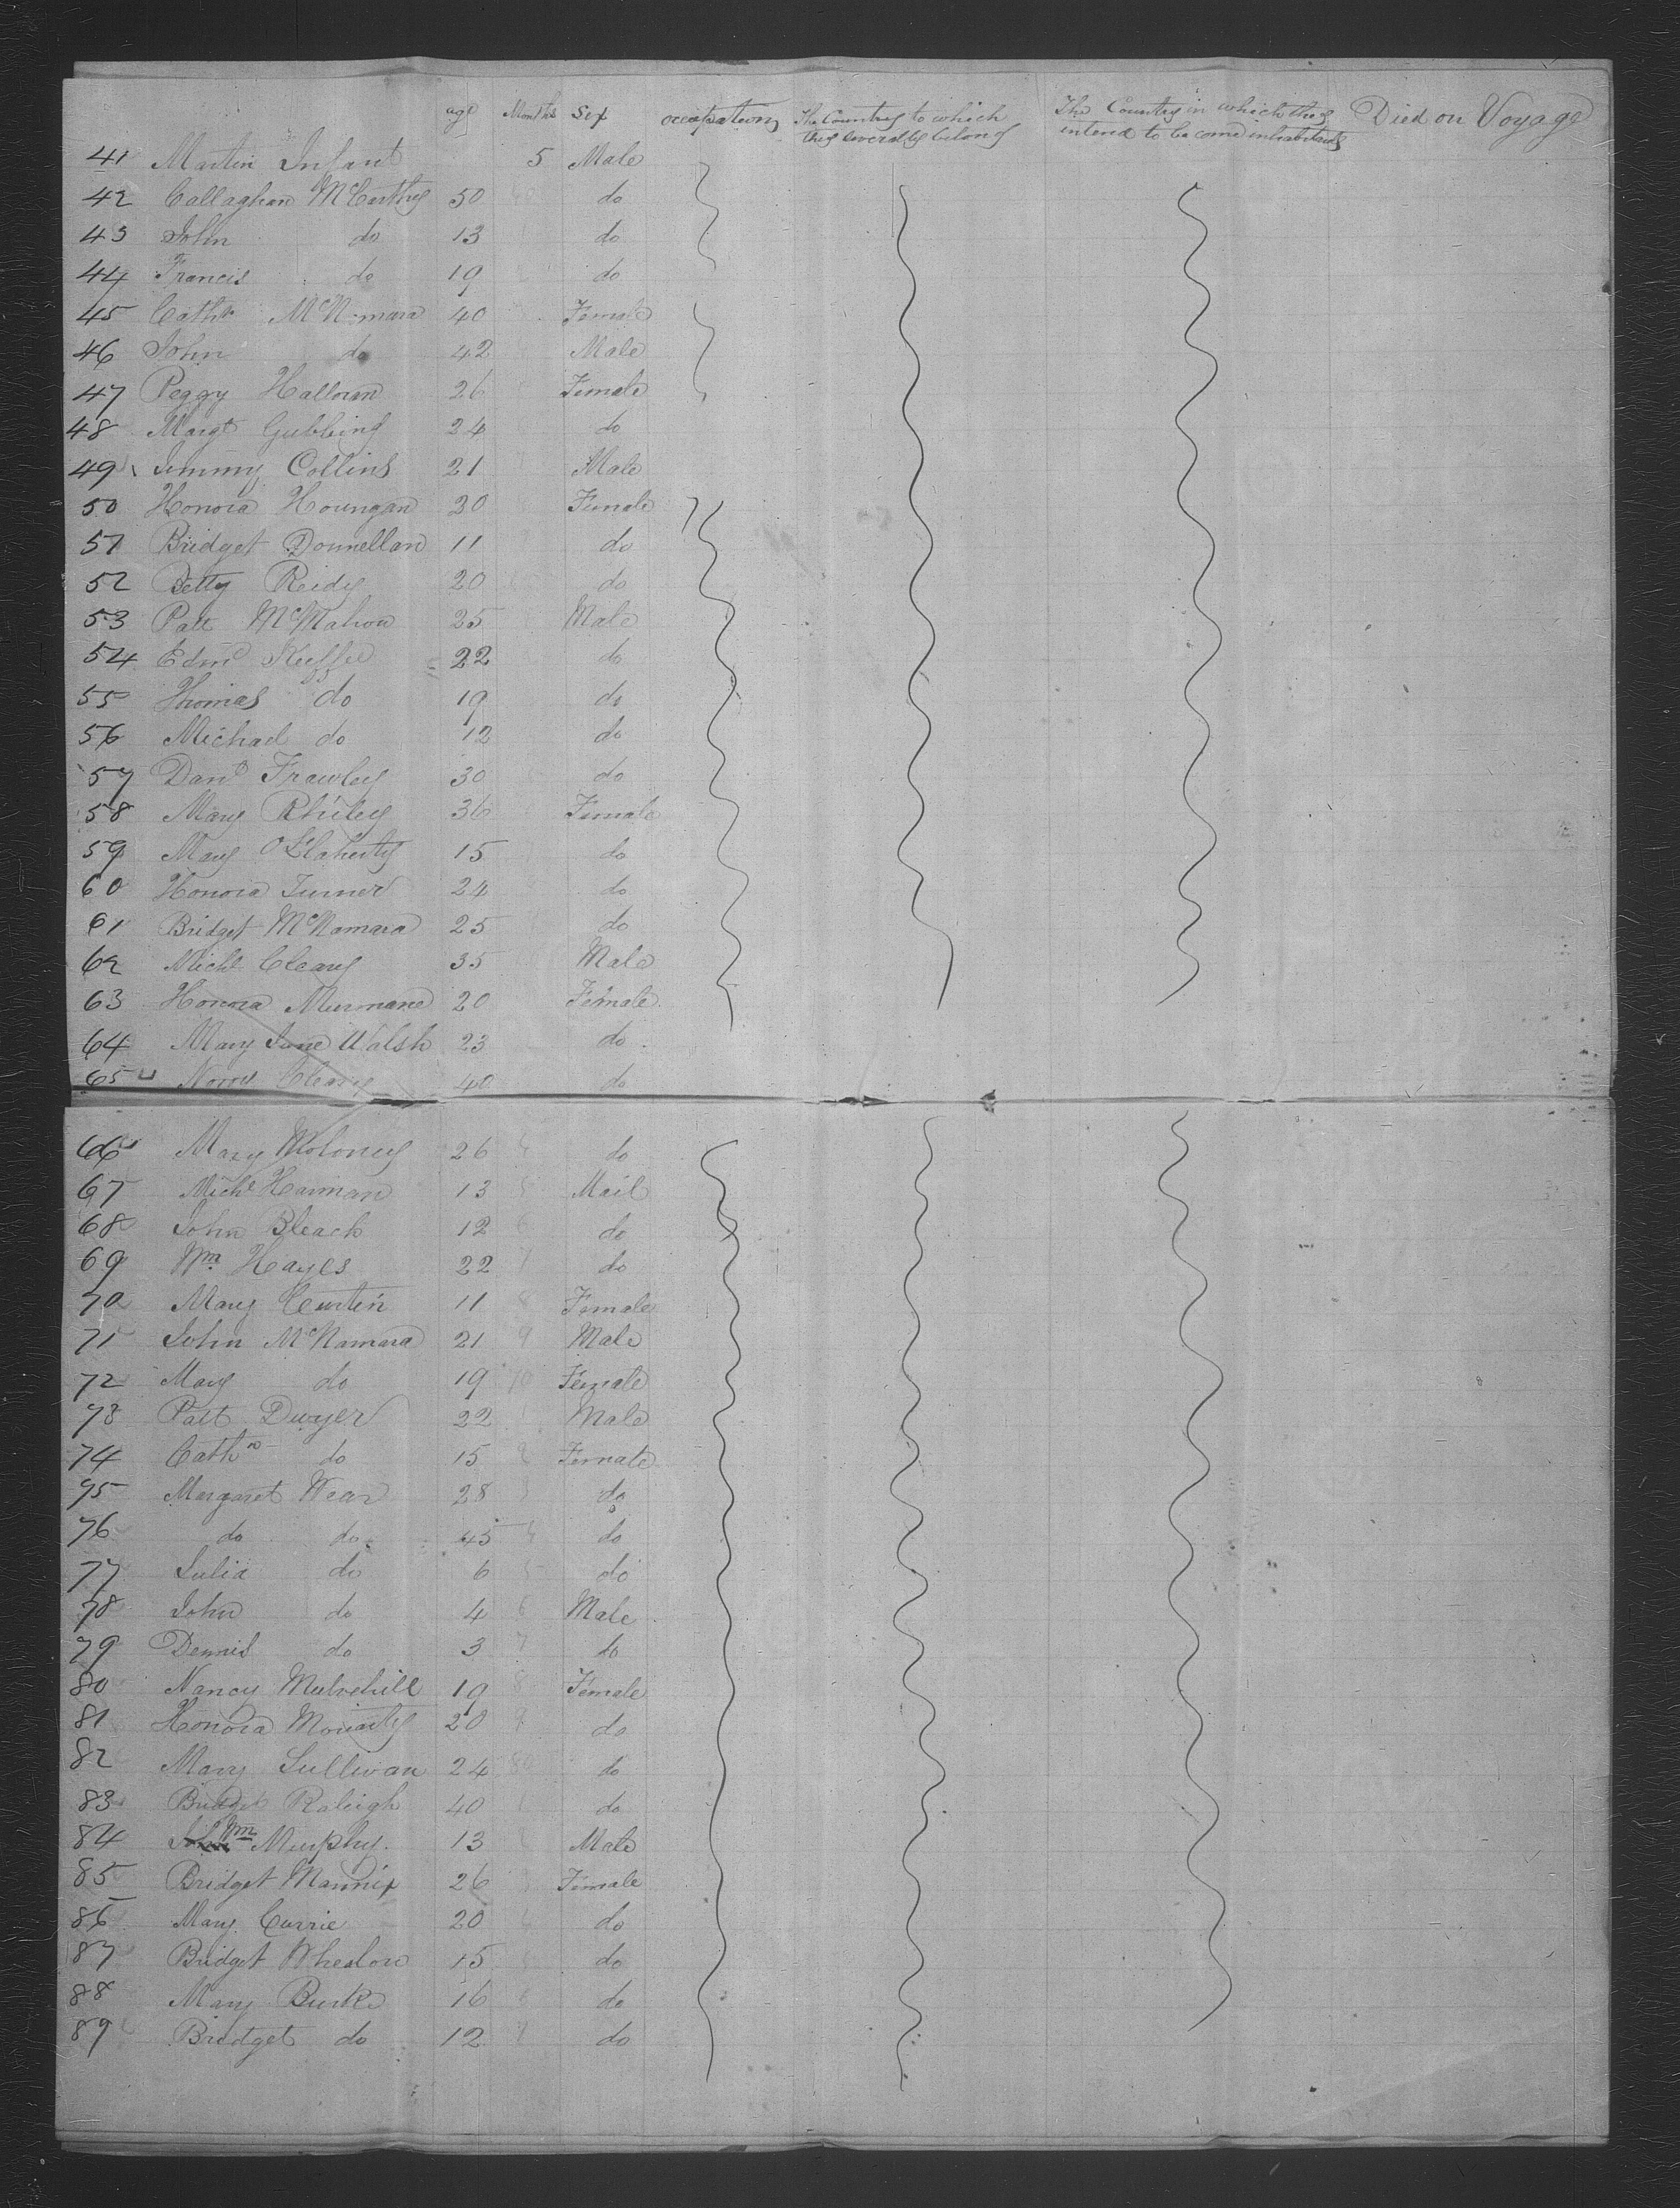 age Months Sex occupation The Country to which they severally belong The Country in which they intend to become inhabitants Died on Voyage
41 Martin Infant 5 Male
42 Callaghan McCarthy 50 do
43 John do 13 do
44 Francis do 19 do
45 Cath McN-mara 40 Female
46 John do 42 Male
47 Peggy Halloran 26 Female
48 Margt Gubbins 24 do
49 Jimmy Collins 21 Male
50 Honora Houngan 30 Female
51 Bridget Donnellan 11 do
52 Betty Reidy 20 do
53 Patt McMahon 25 Male
54 Edmd Keeffe 22 do
55 Thomas do 19 do
56 Michael do 12 do
57 Danl Frawley 30 do
58 Mary Rhiley 36 Female
59 Mary O'Flaherty 15 do
60 Honora Turner 24 do
61 Bridget McNamara 25 do
62 Michl Cleary 35 Male
63 Honora Murnane 20 Female
64 Mary Jane Walsh 23 do
65 Norry Cleary 40 do
66 Mary Moloney 26 do
67 Michl Harman 13 Mail
68 John Bleach 12 do
69 Wm Hayes 22 do
70 Mary Curtin 11 Female
71 John McNamara 21 Male
72 Mary do 19 Female
73 Patt Dwyer 22 Male
74 Cathn do 15 Female
75 Margaret Wear 28 do
76 do do 45 do
77 Julia do 6 do
78 John do 4 Male
79 Dennis do 3 do
80 Nancy Mulvehill 19 Female
81 Honora Moriarty 20 do
82 Mary Sullivan 24 do
83 Bridget Raleigh 40 do
84 Wm Murphy. 13 Male
85 Bridget Mannix 26 Female
86 Mary Currie 20 do
87 Bridget Whealon 15 do
88 Mary Burke 16 do
89 Bridget do 12 do